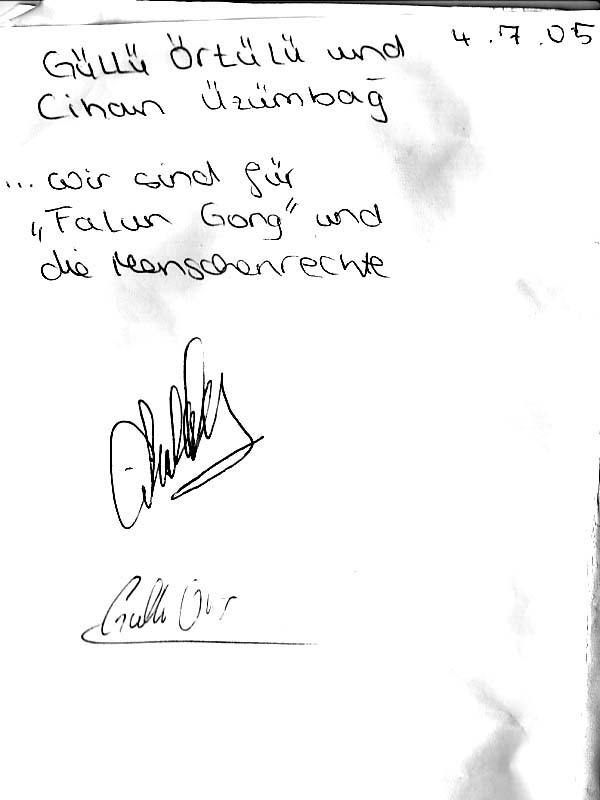 4.7.05
Güllü Örtülü und
Cihan Üzümbağ
... wir sind für
„Falun Gong" und
die Menschenrechte